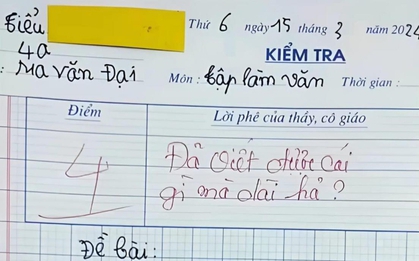 Tiểu
Thứ 6 ngày 15 tháng 3 năm 2024
4a
KIỂM TRA
: Ma Văn Đại
Môn : tập làm văn Thời gian :
Điểm
Lời phê của thầy, cô giáo
4
Đã viết được cái
gì mà dài hả ?
Đề bài: